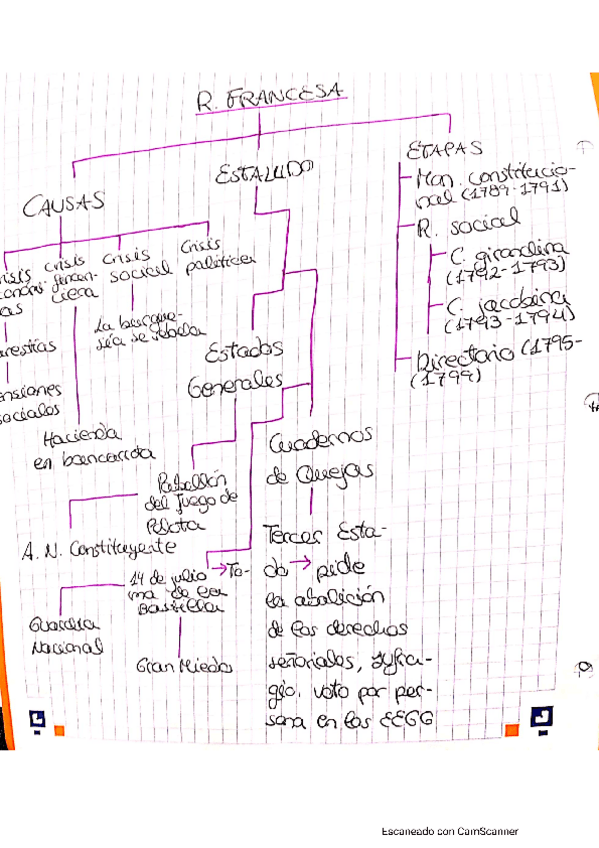 R. FRANCESA
CAUSAS
ESTALLIDO
ETAPAS
Crisis
política
Crisis
social
crisis
financi-
ciera
La burgue-
sía se rebela
Hacienda
en bancarrota
Estados
Generales
Rebelión
del Juego de
Pelota
A. N. Constituyente
14 de julio → To-
ma de la
Bastilla
Guardia
Nacional
Gran Miedo
Cuadernos
de Quejas
Tercer Esta-
do → pide
la abolición
de los derechos
señoriales, sufra-
gio, voto por per-
sona en los EEGG
Mon. constitucio-
nal (1789-1791)
R. social
C. girondina
(1792-1793)
C. jacobina
(1793-1794)
Directorio (1795-
(1799)
Escaneado con CamScanner